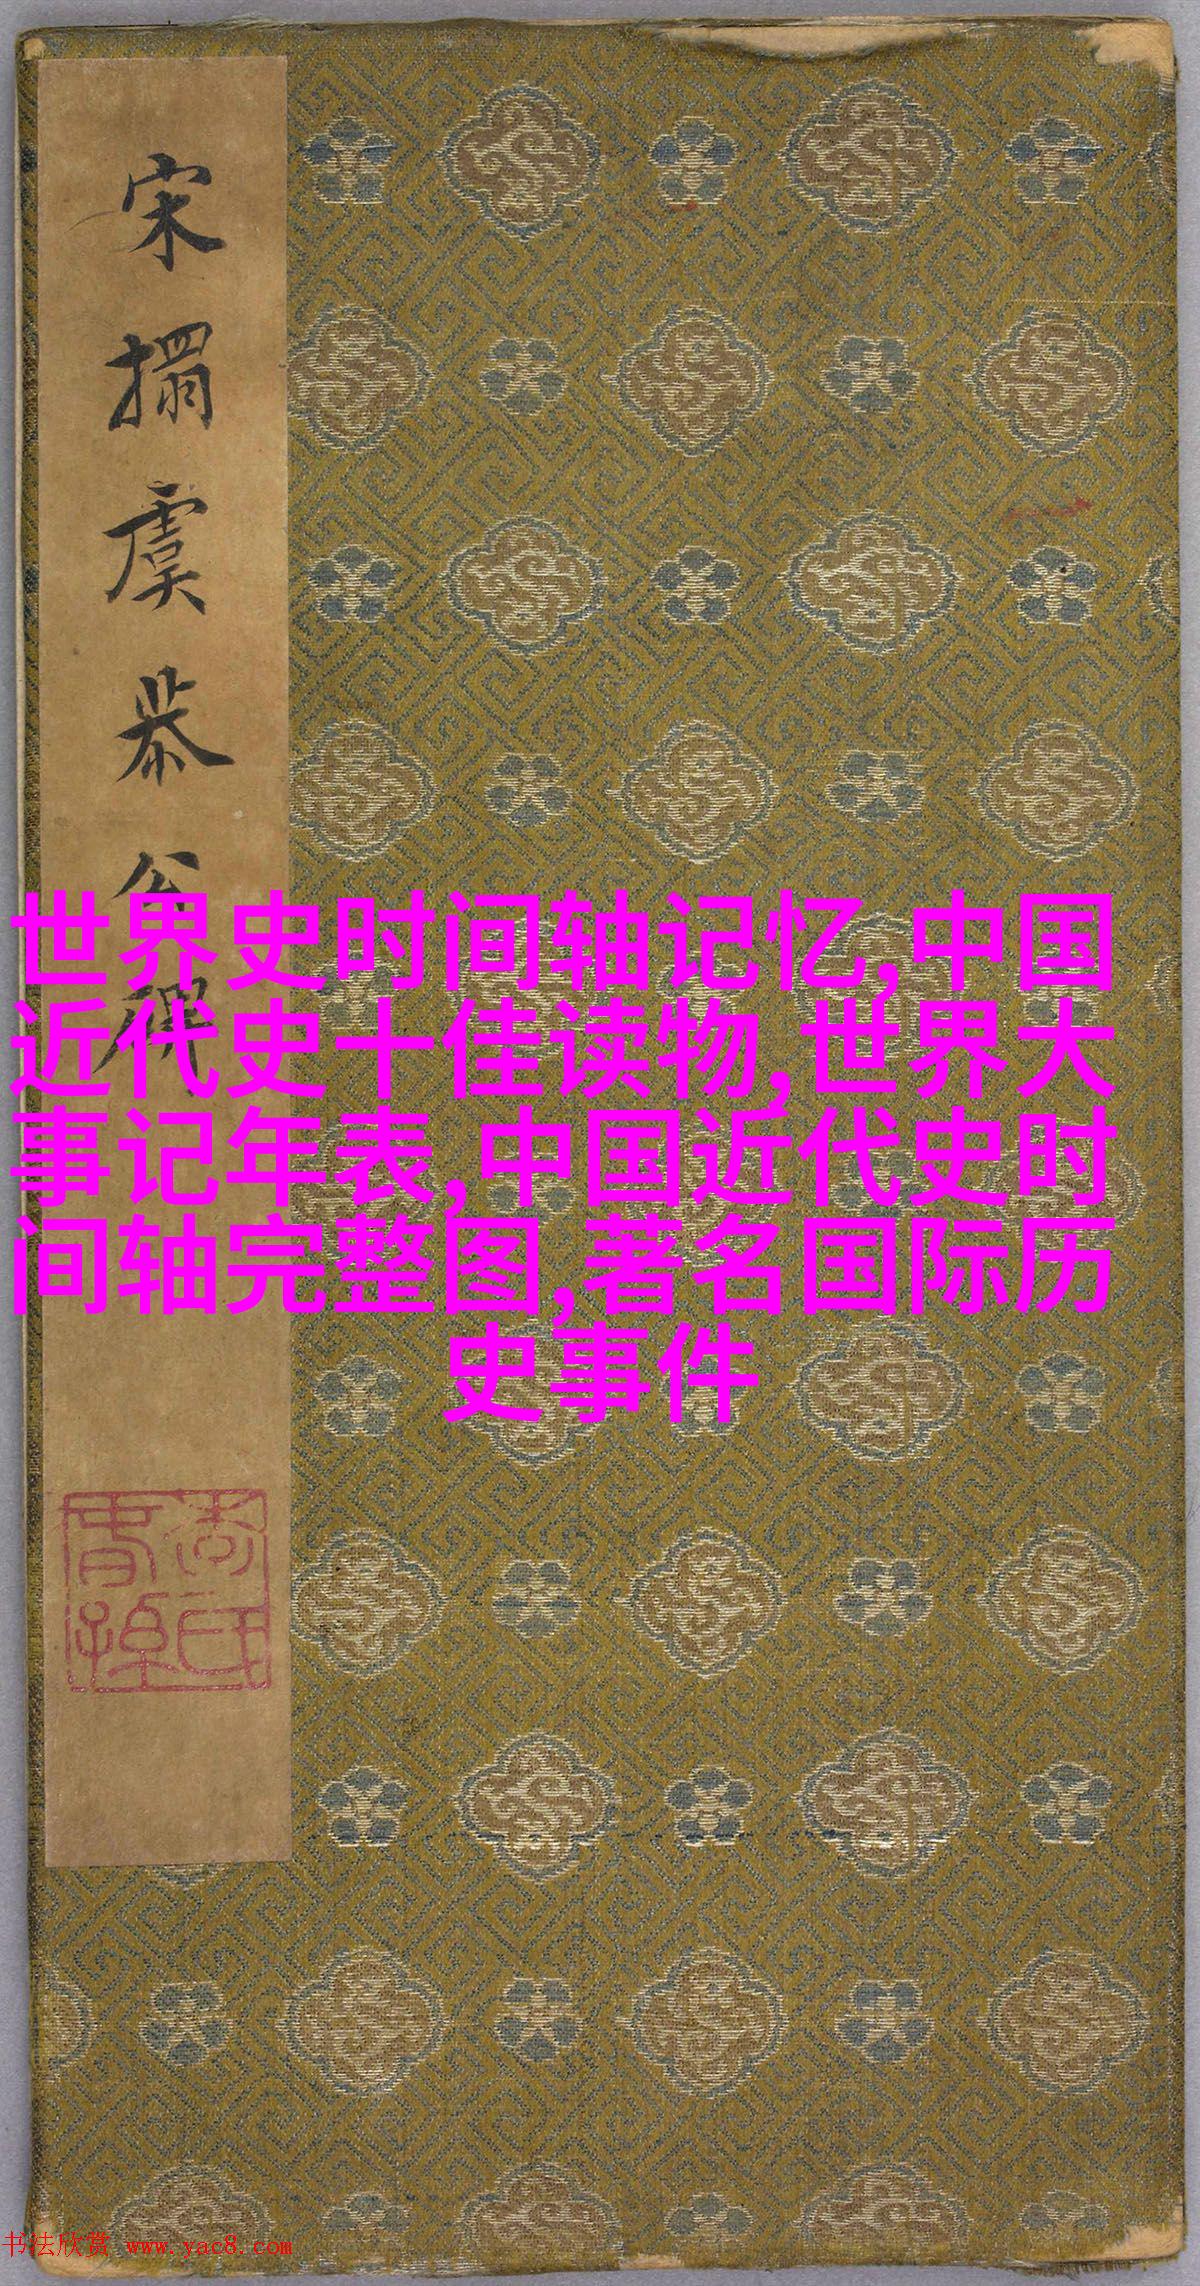 宋搨虞恭公碑
世界史时间轴记忆,中国
近代史十佳读物,世界大
事记年表,中国近代史时
间轴完整图,著名国际历
史事件
书法欣赏 www.yac8.com